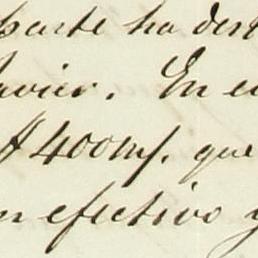 parte ha des
avier. En e
$400 m/. que
en efectivo y